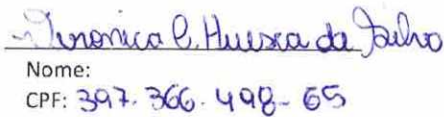 Veronica C. Huesca da Silva
Nome:
CPF: 397.366.498-65